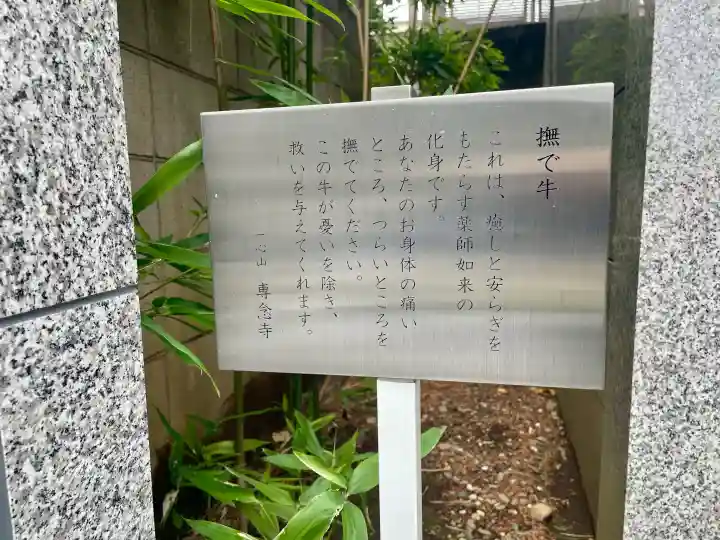 撫で牛
これは、癒しと安らぎを
もたらす薬師如来の
化身です。
あなたのお身体の痛い
ところ、つらいところを
撫でてください。
この牛が憂いを除き、
救いを与えてくれます。
一心山 専念寺